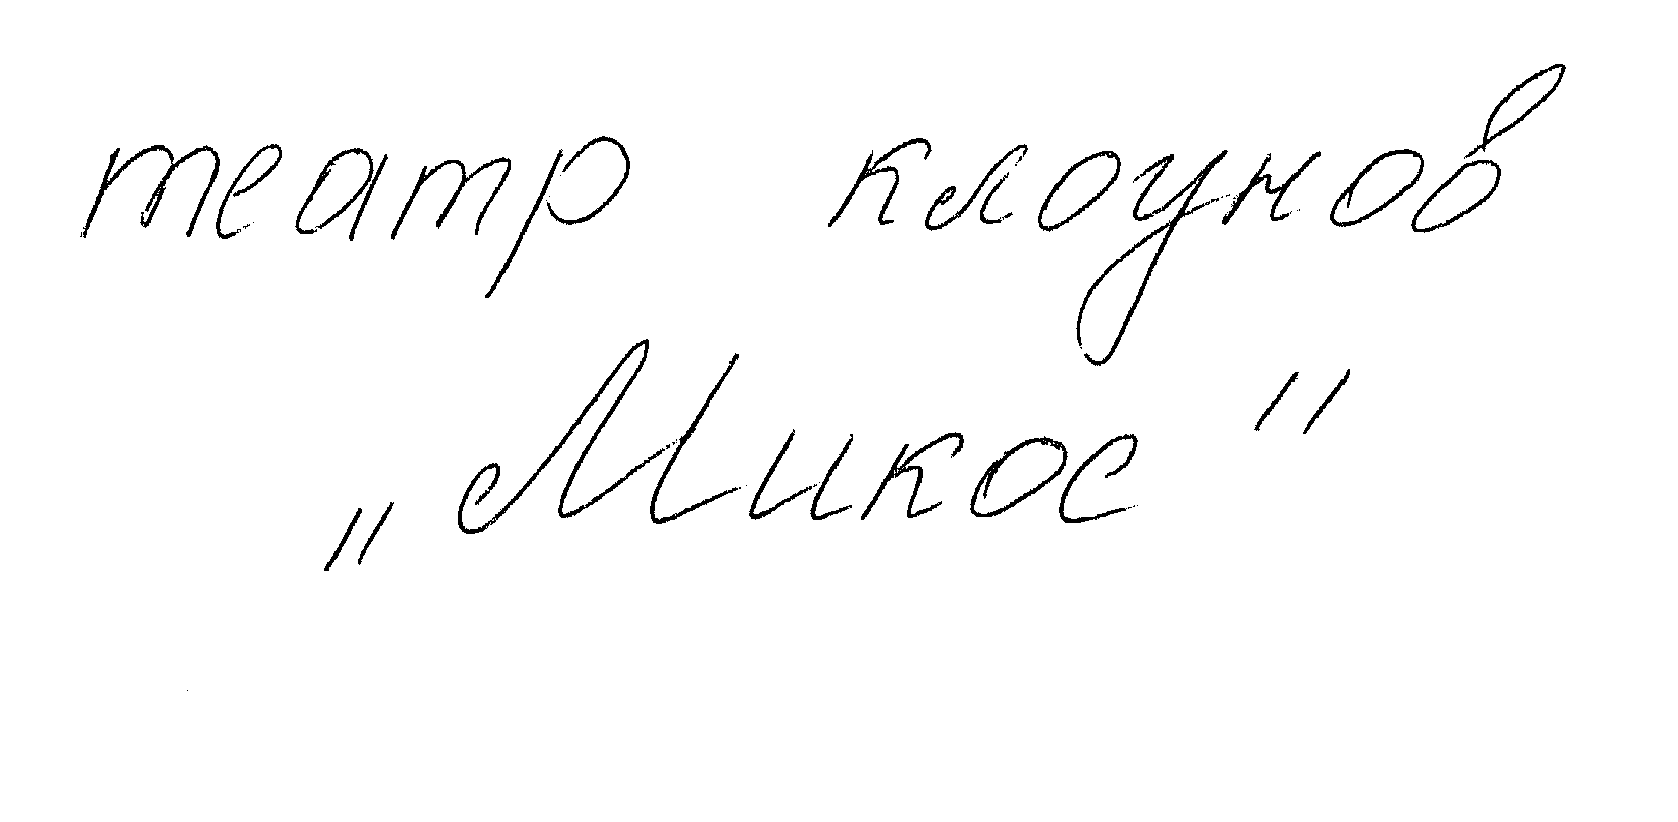 театр клоунов
„Микос"